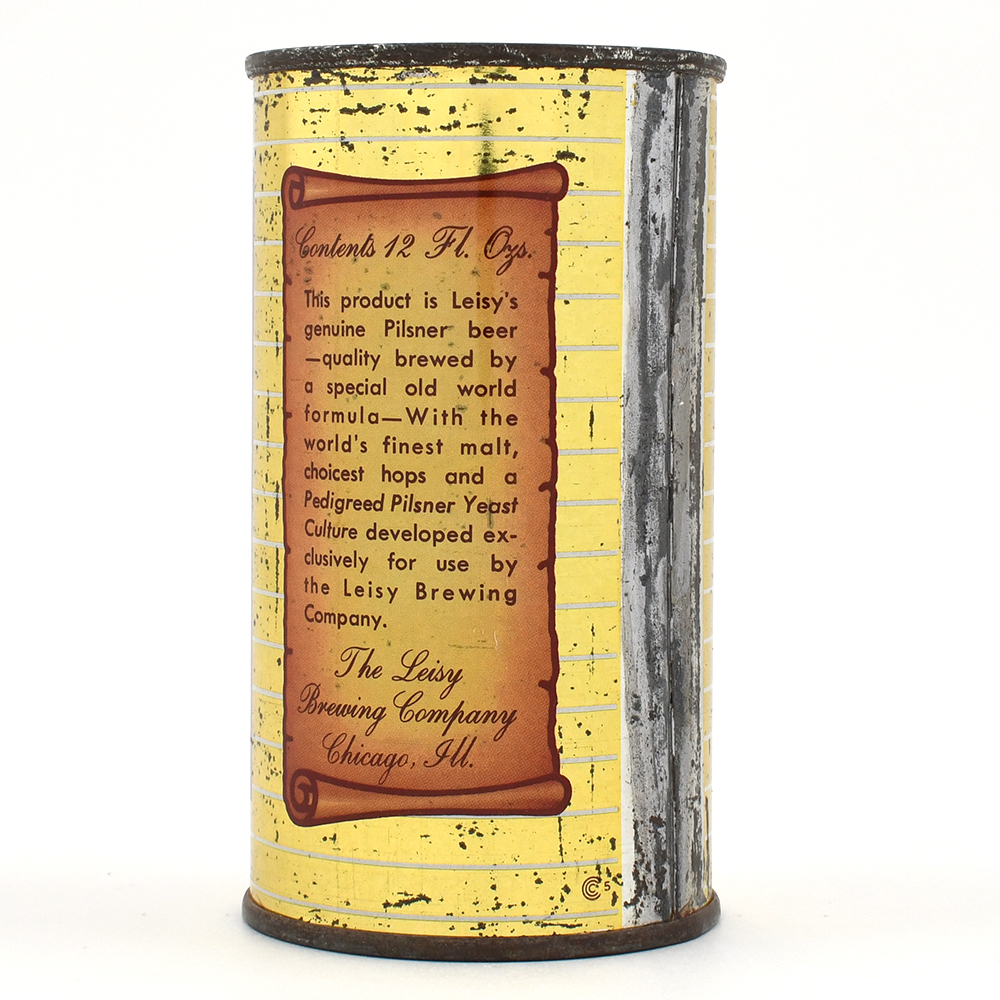 Contents 12 Fl. Ozs.
This product is Leisy's
genuine Pilsner beer
—quality brewed by
a special old world
formula—With the
world's finest malt,
choicest hops and a
Pedigreed Pilsner Yeast
Culture developed ex-
clusively for use by
the Leisy Brewing
Company.
The Leisy
Brewing Company
Chicago, Ill.
CCC 5